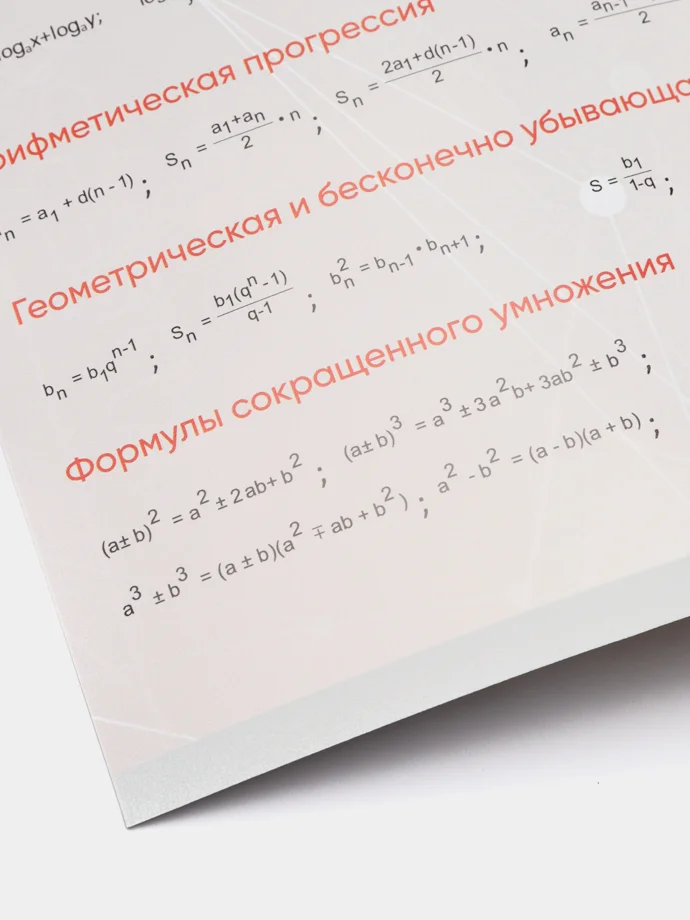 log_a x+log_a y;
Арифметическая прогрессия
a_n = a_1 + d(n - 1) ; S_n = (a_1+a_n)/2 • n ; S_n = (2a_1+d(n-1))/2 • n ;
Геометрическая и бесконечно убывающа
b_n = b_1q^(n-1) ; S_n = b_1(q^n -1)/(q-1) ; b_n^2 = b_(n-1) • b_(n+1) ; S = b_1/(1-q) ;
Формулы сокращенного умножения
(a± b)^2 = a^2 ± 2ab+ b^2 ; (a± b)^3 = a^3 ± 3a^2b+ 3ab^2 ± b^3 ;
a^3 ± b^3 = (a ± b)(a^2 ∓ ab + b^2) ; a^2 - b^2 = (a - b)(a + b) ;